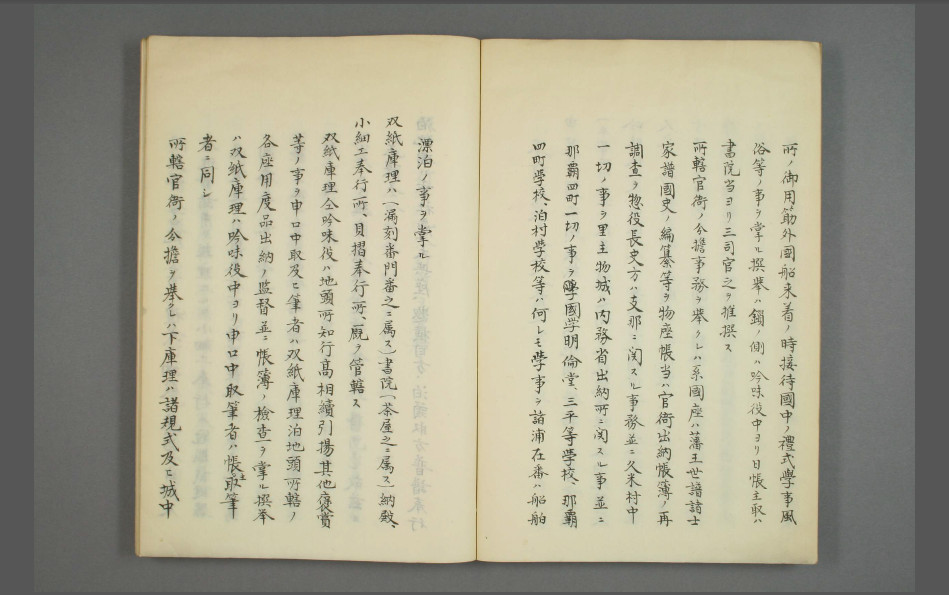 所ノ御用筋外國船来着ノ時接待國中ノ禮式學事風
俗等ノ事ヲ掌ル撰擧ハ鎖ノ側ハ吟味役中ヨリ日帳主取ハ
書院当ヨリ三司官之ヲ推撰ス
所轄官衙ノ分擔事務ヲ擧クレハ系圖座ハ藩王世譜諸士
家譜國史ノ編纂等ヲ物座帳当ハ官衙出納帳簿ノ再
調査ヲ惣役長史方ハ支那ニ関スル事務並ニ久米村中
一切ノ事ヲ里主物城ハ内務省出納所ニ関スル事並ニ
那覇四町一切ノ事ヲ國学明倫堂、三平等學校、那覇
四町學校泊村學校等ハ何レモ學事ヲ諸浦在番ハ船舶
漂泊ノ事ヲ掌ル
双紙庫理ハ(漏刻番門番之ニ属ス)書院(茶屋之ニ属ス)納殿、
小細工奉行所、貝摺奉行所、厩ヲ管轄ス
双紙庫理仝吟味役ハ地頭所知行高相續引揚其他褒賞
等ノ事ヲ申口中取及ヒ筆者ハ双紙庫理泊地頭所轄ノ
各座用度品出納ノ監督並ニ帳簿ノ檢査ヲ掌ル撰擧
ハ双紙庫理ハ吟味役中ヨリ申口中取筆者ハ帳主取筆
者ニ同シ
所轄官衙ノ分擔ヲ擧クレハ下庫理ハ諸規式及ヒ城中